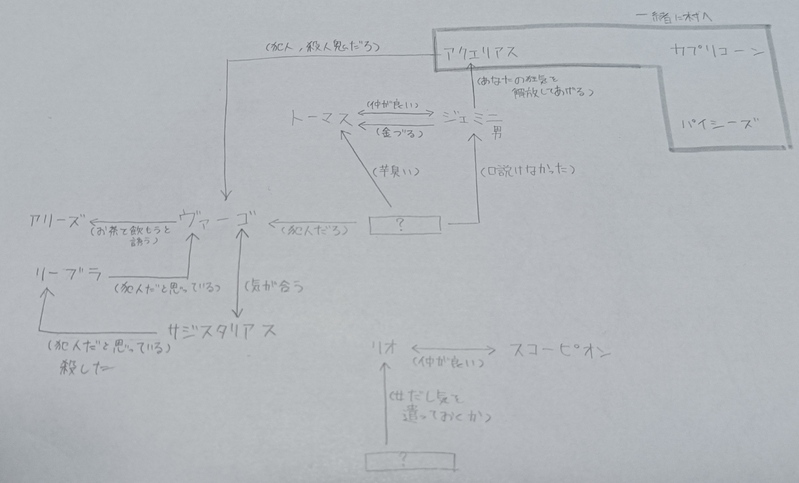 一緒に村へ
(犯人,殺人鬼だろ)
アクエリアス
カプリコーン
(あなたの狂気を
解放してあげる)
トーマス
(仲が良い)
(金づる)
ジェミニ
男
パイシーズ
(芋臭い)
(口説けなかった)
アリーズ
(お茶で飲もうと
誘う)
ヴァーゴ
(犯人だろ)
?
リーブラ
(犯人だと思っている)
(気が合う)
サジスタリアス
(犯人だと思っている)
殺した
リオ
(仲が良い)
スコーピオン
(せだし気を
遣っておくか)
?